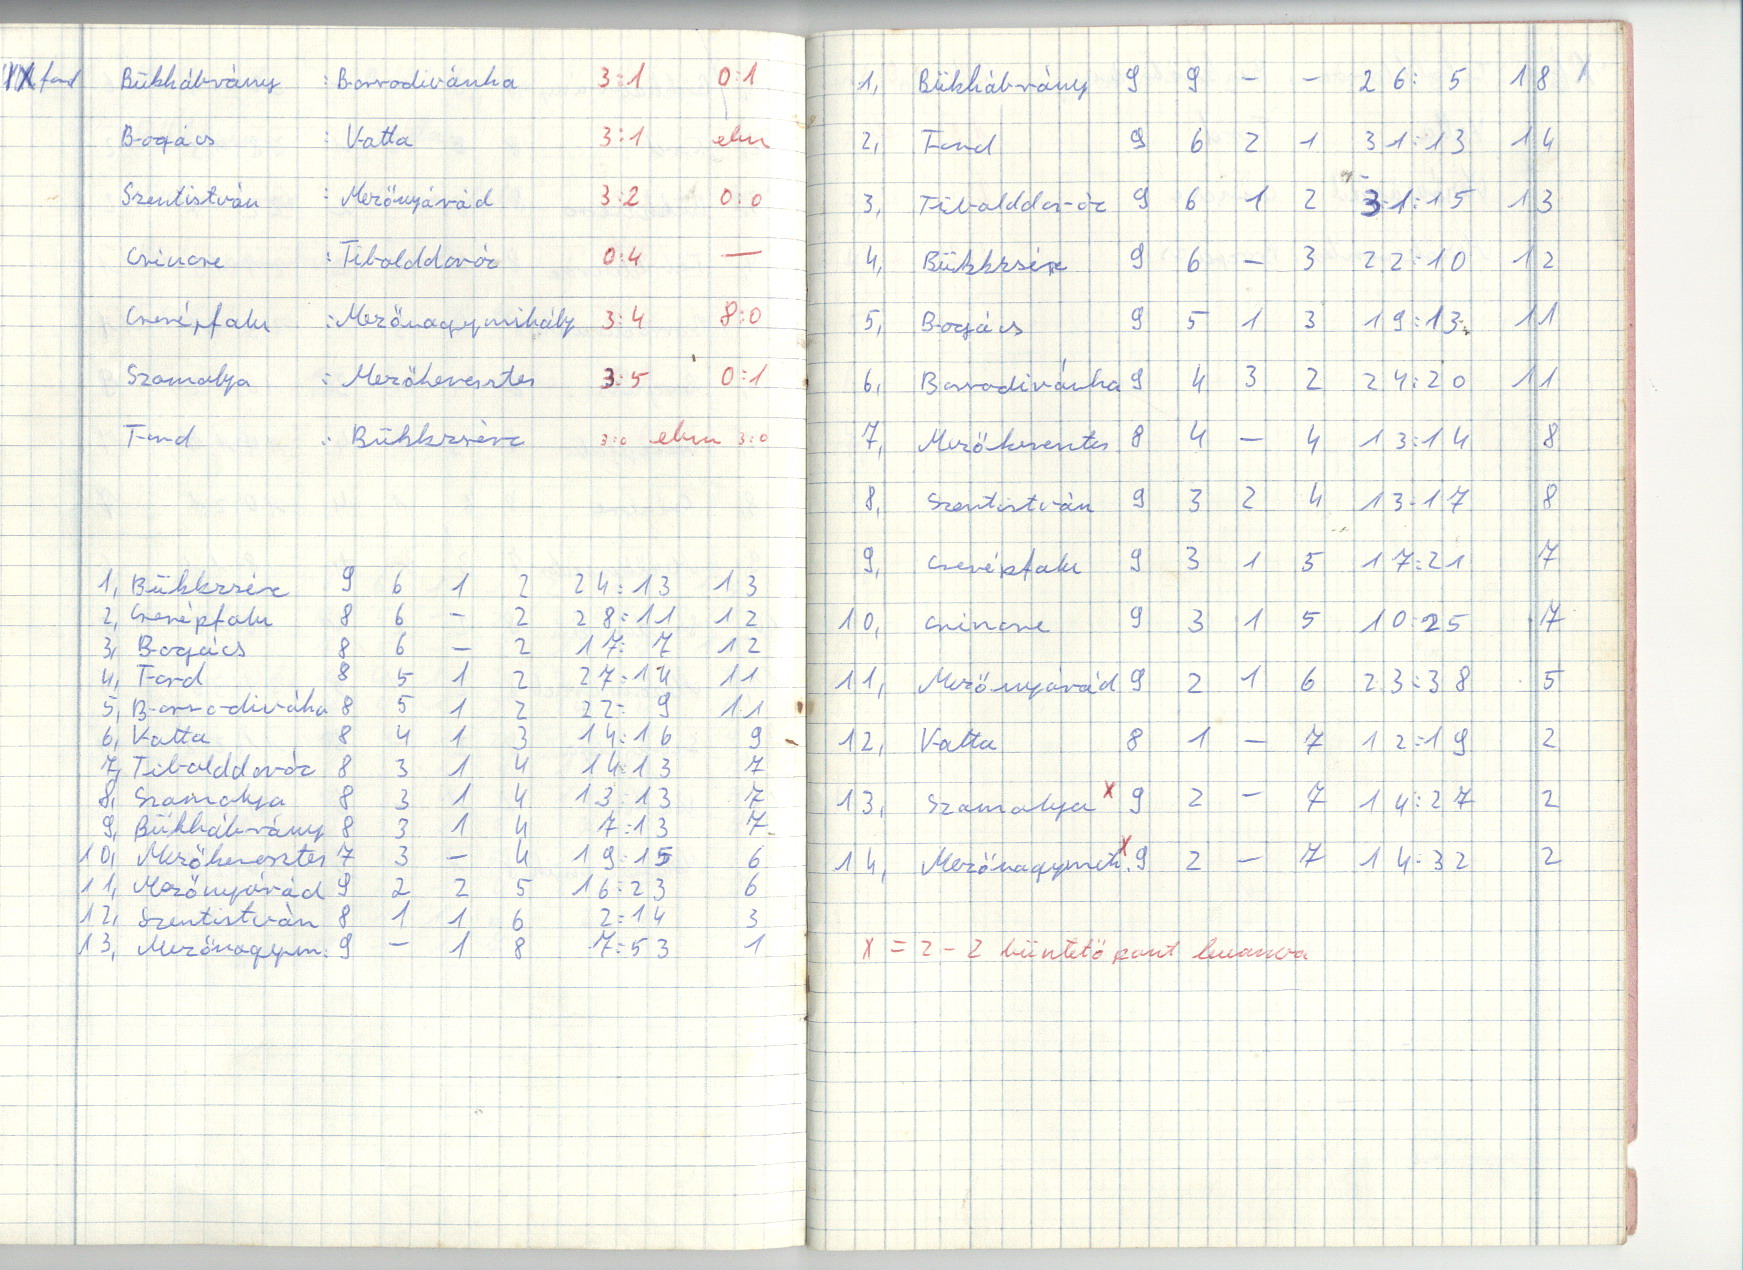 IX ford Bükkábrány : Borsodivánka 3:1 0:1
Bogács : Vatta 3:1 elm
Szentistván : Mezőnyárád 3:2 0:0
Csincse : Tibolddaróc 0:4 —
Cserépfalu : Mezőnagymihály 3:4 8:0
Szomolya : Mezőkeresztes 3:5 0:1
Tard : Bükkzsérc 3:0 elm 3:0
1, Bükkzsérc 9 6 1 2 24:13 13
2, Cserépfalu 8 6 – 2 28:11 12
3, Bogács 8 6 – 2 17:7 12
4, Tard 8 5 1 2 27:14 11
5, Borsodiváka 8 5 1 2 22:9 11
6, Vatta 8 4 1 3 14:16 9
7, Tibolddaróc 8 3 1 4 14:13 7
8, Szomolya 8 3 1 4 13:13 7
9, Bükkábrány 8 3 1 4 7:13 7
10, Mezőkeresztes 7 3 – 4 19:15 6
11, Mezőnyárád 9 2 2 5 16:23 6
12, Szentistván 8 1 1 6 2:14 3
13, Mezőnagym. 9 – 1 8 7:53 1
1, Bükkábrány 9 9 – – 26:5 18
2, Tard 9 6 2 1 31:13 14
3, Tibolddaróc 9 6 1 2 31:15 13
4, Bükkzsérc 9 6 – 3 22:10 12
5, Bogács 9 5 1 3 19:13 11
6, Borsodivánka 9 4 3 2 24:20 11
7, Mezőkeresztes 8 4 – 4 13:14 8
8, Szentistván 9 3 2 4 13:17 8
9, Cserépfalu 9 3 1 5 17:21 7
10, Csincse 9 3 1 5 10:25 7
11, Mezőnyárád 9 2 1 6 23:38 5
12, Vatta 8 1 – 7 12:19 2
13, Szomolya x 9 2 – 7 14:27 2
14, Mezőnagymih. x 9 2 – 7 14:32 2
x = 2-2 büntető pont levonva